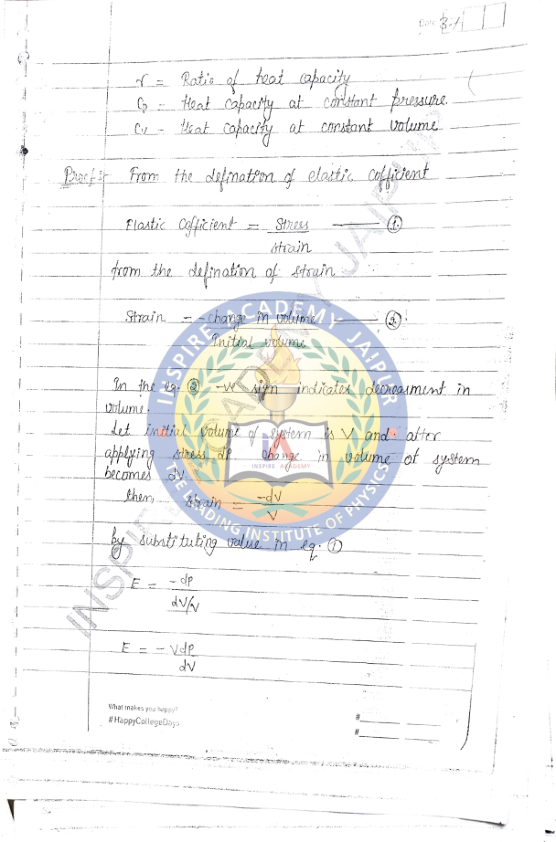 Date 3.1
γ = Ratio of heat capacity
Cp - Heat capacity at constant pressure.
Cv - Heat capacity at constant volume
Proof :- From the defination of elastic cofficient
Elastic Cofficient = Stress / strain ——— ①
from the defination of strain
Strain = - change in volume / Initial volume ——— ②
In the eq. ② -ve sign indicates decreasment in
volume.
Let initial volume of system is V and after
applying stress dp change in volume of system
becomes dV
then strain = -dV / V
by substituting value in eq. ①
E = -dp / dV/V
E = -Vdp / dV
What makes you happy?
#HappyCollegeDays
#
#
INSPIRE ACADEMY JAIPUR
INSPIRE ACADEMY JAIPUR
INSPIRE ACADEMY
INSTITUTE OF PHYSICS